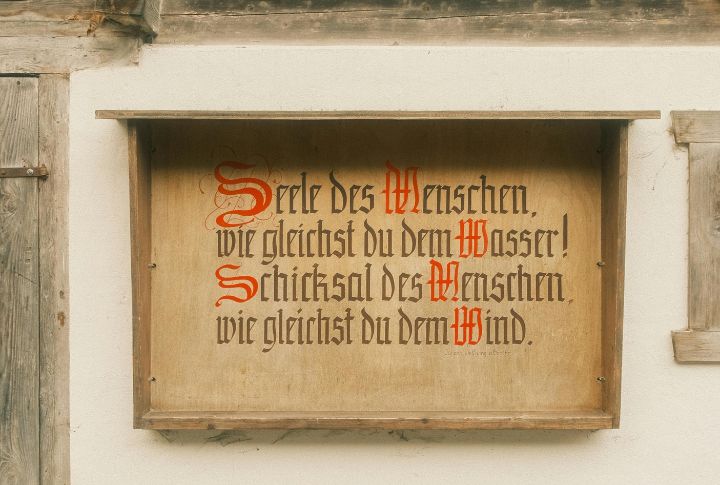 Seele des Menschen,
wie gleichst du dem Wasser!
Schicksal des Menschen,
wie gleichst du dem Wind.